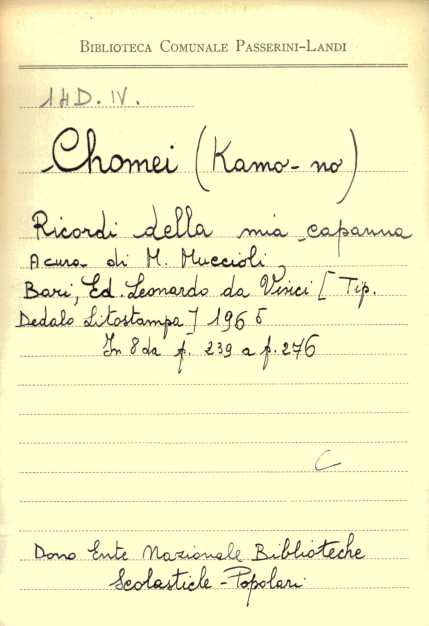 BIBLIOTECA COMUNALE PASSERINI-LANDI
14D. IV.
Chomei (Kamo-no)
Ricordi della mia capanna
A cura di M. Muccioli,
Bari, Ed. Leonardo da Vinci [Tip.
Dedalo Litostampa] 1965
In 8 da p. 239 a p. 276
C
Dono Ente Nazionale Biblioteche
Scolastiche-Popolari